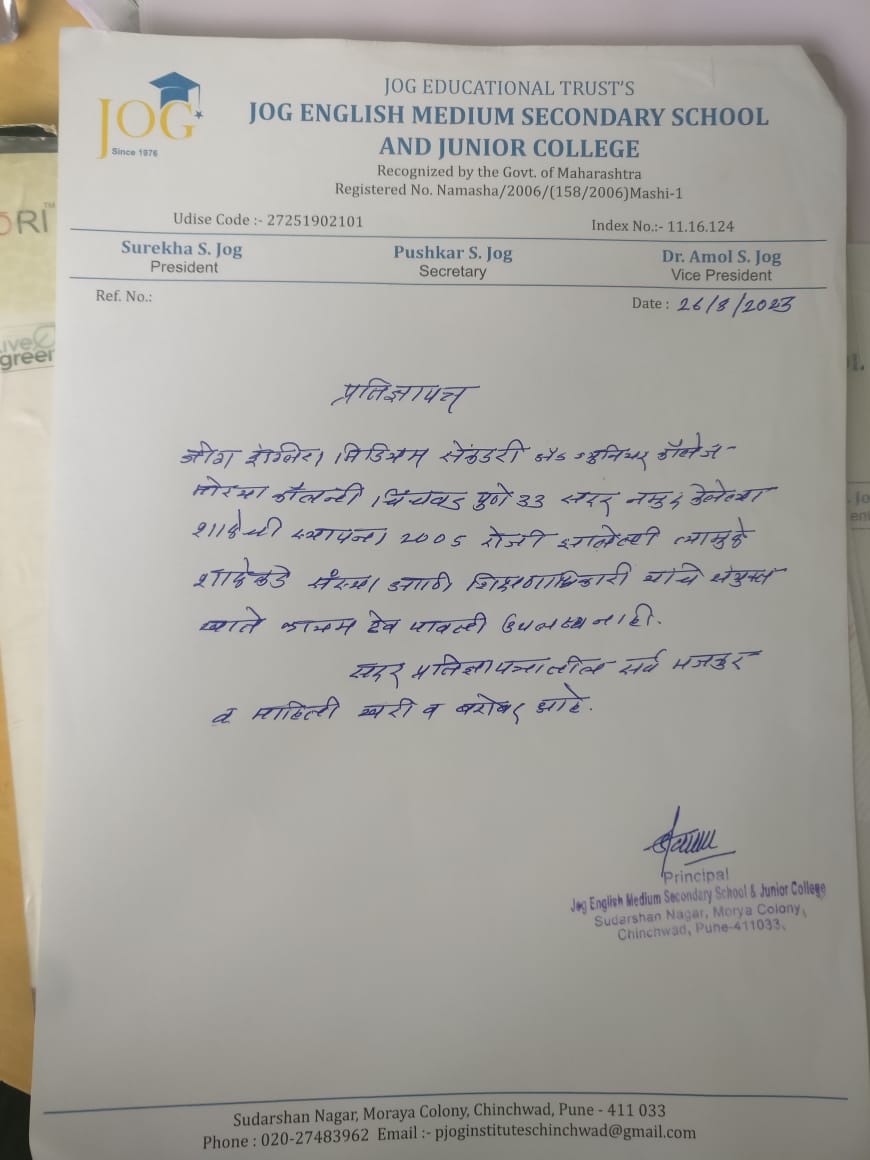 JOG
Since 1976
JOG EDUCATIONAL TRUST'S
JOG ENGLISH MEDIUM SECONDARY SCHOOL
AND JUNIOR COLLEGE
Recognized by the Govt. of Maharashtra
Registered No. Namasha/2006/(158/2006)Mashi-1
Udise Code :- 27251902101
Index No.:- 11.16.124
Surekha S. Jog
President
Pushkar S. Jog
Secretary
Dr. Amol S. Jog
Vice President
Ref. No.:
Date : 26/8/2023
प्रतिज्ञापत्र
जोग इंग्लिश मिडियम सेकंडरी अँड ज्युनियर कॉलेज -
मोरया कॉलनी चिंचवड पुणे 33 सदर नमुद केलेल्या
शाळेची स्थापना 2005 रोजी झालेली त्यामुळे
शाळेकडे संस्था आणि शिक्षणाधिकारी यांचे संयुक्त
खाते कायम ठेव पावती उपलब्ध नाही.
सदर प्रतिज्ञापत्रातील सर्व मजकुर
व माहिती खरी व बरोबर आहे.
Principal
Jog English Medium Secondary School & Junior College
Sudarshan Nagar, Morya Colony,
Chinchwad, Pune-411033.
Sudarshan Nagar, Moraya Colony, Chinchwad, Pune - 411 033
Phone : 020-27483962 Email :- pjoginstituteschinchwad@gmail.com